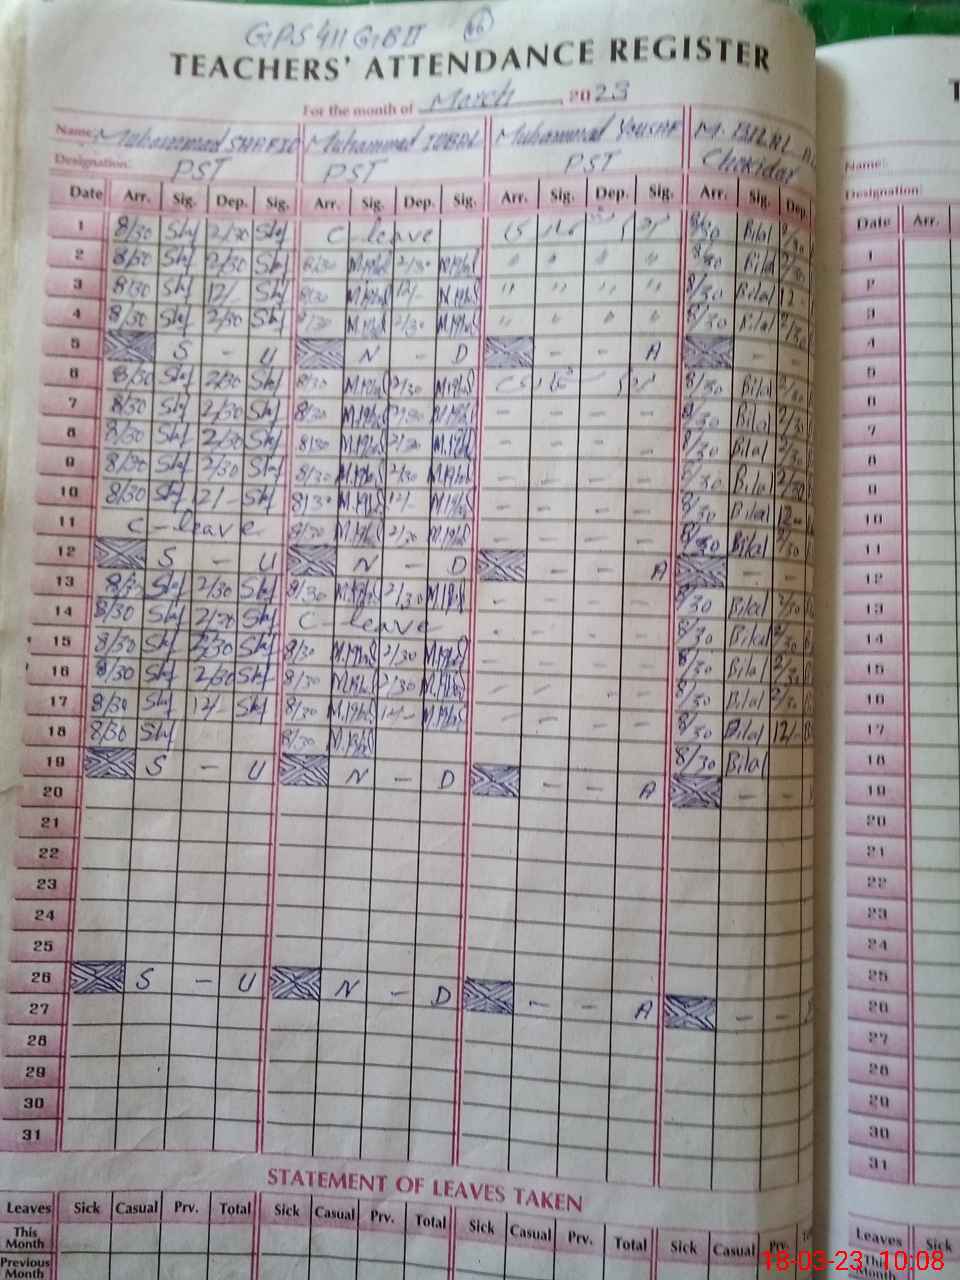 GPS 411 GB II 46
TEACHERS' ATTENDANCE REGISTER
For the month of March 2023
Name: Muhammad SHAFIQ Muhammad IQBAL Muhammad YOUSAF M. BILAL Name:
Designation: PST PST PST Chokidar Designation:
Date Arr. Sig. Dep. Sig. Arr. Sig. Dep. Sig. Arr. Sig. Dep. Sig. Arr. Sig. Dep. Date Arr.
1 8/30 Shf 2/30 Shf C leave 8/30 Bilal 2/30 1
2 8/30 Shf 2/30 Shf 8/30 M.Iqbal 2/30 M.Iqbal " " " " 8/30 Bilal 2/30 2
3 8/30 Shf 12/- Shf 8/30 M.Iqbal 12/- M.Iqbal " " " " 8/30 Bilal 12 - 3
4 8/30 Shf 2/30 Shf 8/30 M.Iqbal 2/30 M.Iqbal " " " " 8/30 Bilal 2/30 4
5 S - U N - D A - - 5
6 8/30 Shf 2/30 Shf 8/30 M.Iqbal 2/30 M.Iqbal 8/30 Bilal 2/30 6
7 8/30 Shf 2/30 Shf 8/30 M.Iqbal 2/30 M.Iqbal - - - - 8/30 Bilal 2/30 7
8 8/30 Shf 2/30 Shf 8/30 M.Iqbal 2/30 M.Iqbal - - - - 8/30 Bilal 2/30 8
9 8/30 Shf 2/30 Shf 8/30 M.Iqbal 2/30 M.Iqbal - - - - 8/30 Bilal 2/30 9
10 8/30 Shf 12/- Shf 8/30 M.Iqbal 12/- M.Iqbal - - - - 8/30 Bilal 12 - 10
11 C - leave 8/30 M.Iqbal 2/30 M.Iqbal - - - - 8/30 Bilal 2/30 11
12 S - U N - D - - A - - 12
13 8/30 Shf 2/30 Shf 8/30 M.Iqbal 2/30 M.Iqbal - - - - 8/30 Bilal 2/30 13
14 8/30 Shf 2/30 Shf C - leave - - - - 8/30 Bilal 2/30 14
15 8/30 Shf 2/30 Shf 8/30 M.Iqbal 2/30 M.Iqbal - - - - 8/30 Bilal 2/30 15
16 8/30 Shf 2/30 Shf 8/30 M.Iqbal 2/30 M.Iqbal - - - - 8/30 Bilal 2/30 16
17 8/30 Shf 12/- Shf 8/30 M.Iqbal 12/- M.Iqbal - - - - 8/30 Bilal 12/- 17
18 8/30 Shf 8/30 M.Iqbal 8/30 Bilal 18
19 S - U N - D - - A - - 19
20 20
21 21
22 22
23 23
24 24
25 25
26 S - U N - D - - A - - 26
27 27
28 28
29 29
30 30
31 31
STATEMENT OF LEAVES TAKEN
Leaves Sick Casual Prv. Total Sick Casual Prv. Total Sick Casual Prv. Total Sick Casual Prv. Leaves Sick
This Month This Month
Previous Month
18-03-23 10:08